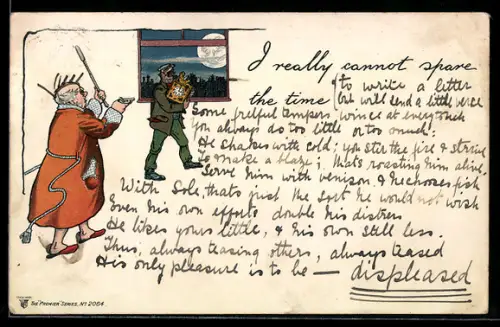 I really cannot spare
the time (to write a letter
(but will send a little verse
Some fretful tempers wince at every touch
You always do too little or too much:
He shakes with cold; you stir the fire & strive
To make a blaze; that's roasting him alive.
Serve him with venison & he chooses fish
With Sole, that's just the sort he would not wish
Even his own efforts double his distress
He likes yours little, & his own still less.
Thus, always teasing others, always teased
His only pleasure is to be — displeased
THE "PREMIER" SERIES, No 2064